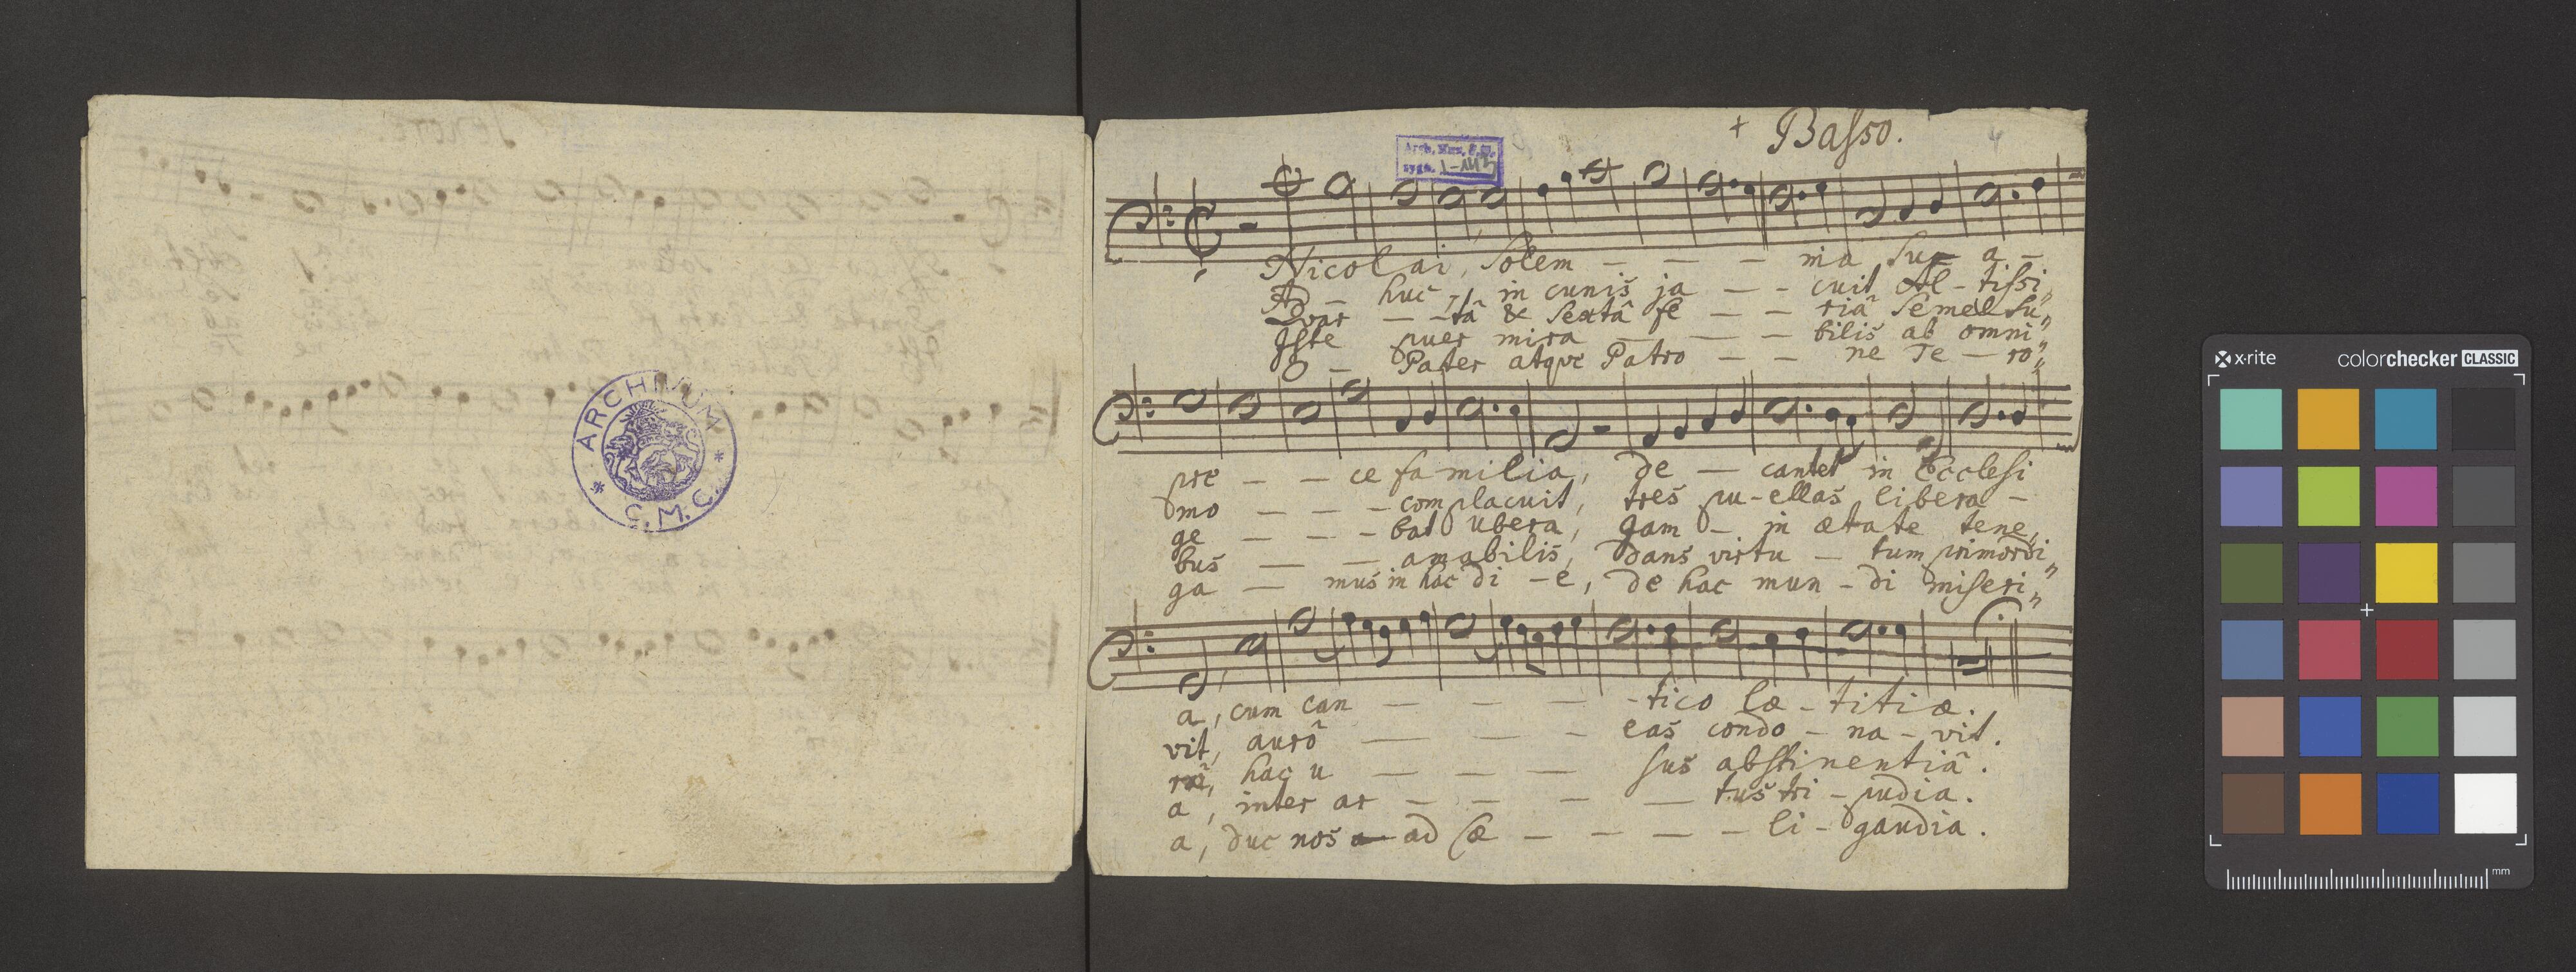 ARCHIVUM
C. M. C.
+ Basso.
4
Arch. Muz. K.M.
sygn. I-113
Nicolai, solem - - - nia Sum a -
Ad - huc in cunis ja - - cuit Al - tissi„
Quar - - tâ & Sextâ fe - - riâ semel su„
Iste puer mira - - - bilis ab omni„
O - Pater atque Patro - - ne Te - ro„
pre - - ce familia, de - cantet in Ecclesi
mo - - - complacuit, tres pu-ellas libera -
ge - - - bat ubera, Jam - in ætate tene„
bus - - amabilis, Dans virtu - tum primordi„
ga - mus in hac di - e, de hac mun - di miseri„
a, cum can - - - - tico læ - titiæ.
vit, aurô - - - eas condo - na - vit.
râ, hac u - - - sus abstinentiâ.
a, inter ar - - - - tus tri - pudia.
a, duc nos ad Cæ - - - - li - gaudia.
x·rite
colorchecker CLASSIC
mm